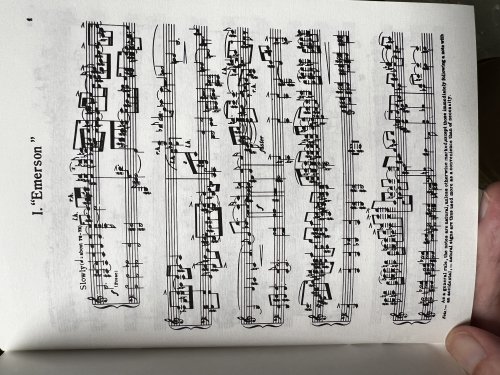 1. "Emerson"
Slowly
r.h.
l.h.
l.h.
r.h.
faster
As a general rule, the notes are natural, unless otherwise marked except those immediately following a note with
an accidental ... natural signs are thus used more as a convenience than of necessity.